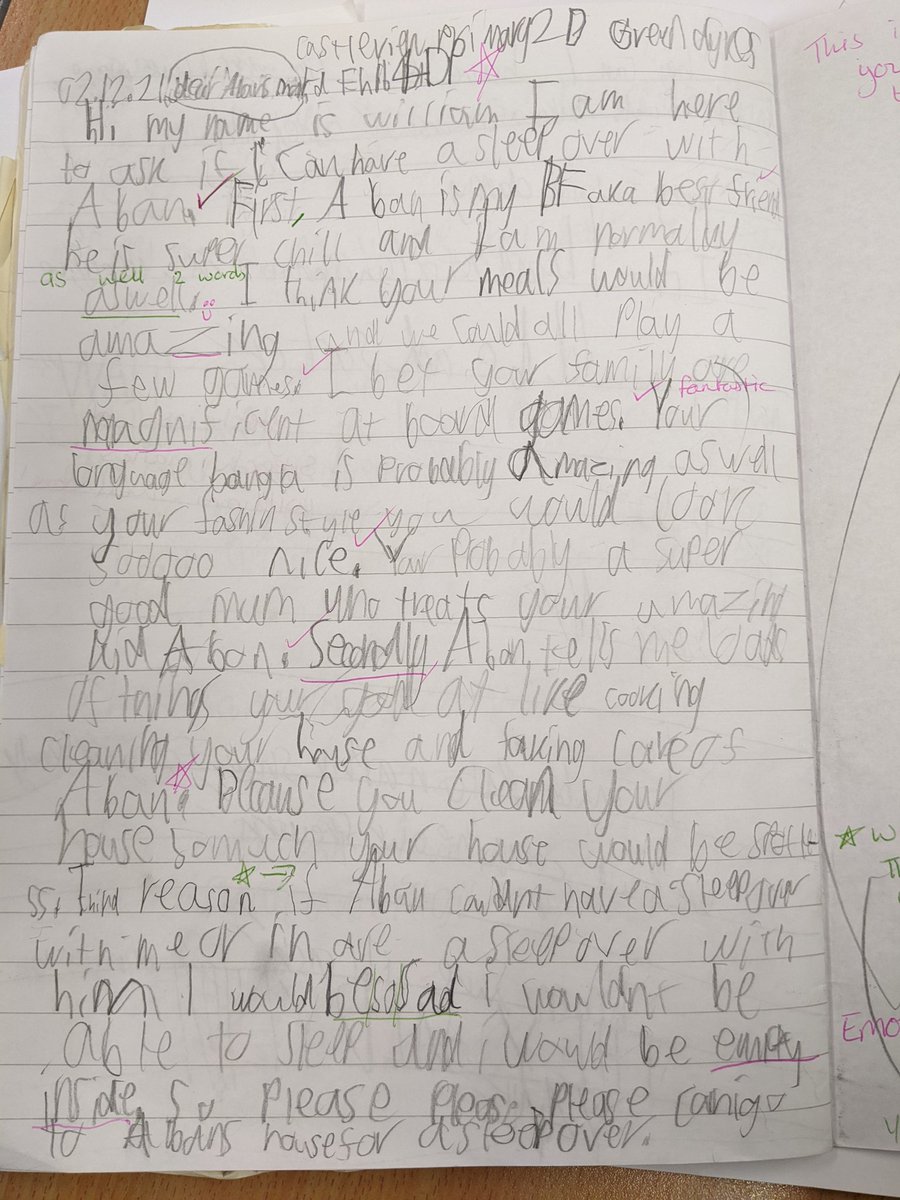 castleview primary 20 Greendykes
02.12.21 Dear Abans mum Eh16 4DP
Hi my name is william I am here
to ask if I can have a sleep over with
Aban. First, Aban is my BF aka best friend
he is super chill and I am normally
as well 2 words
aswell. I thiAK your meals would be
amazing and we could all Play a
few games. I bet your family are
fantastic
magdnificent at board games. Your
language bangla is Probably Amazing aswell
as your fashin style you would look
sooooo nice. Your Probably a super
good mum who treats your amazing
kid Aban. Secondly, Aban tells me loads
of things your good at like cooking
cleaning your house and taking care of
Aban. Because you clean your
house so much your house would be
Third reason if Aban couldnt have a sleepover
with me or a sleepover with
him I would be so sad i wouldnt be
able to sleep and i would be empty
inside. So please please please can i go
to Abans house for a sleepover.
This i
you
Emo